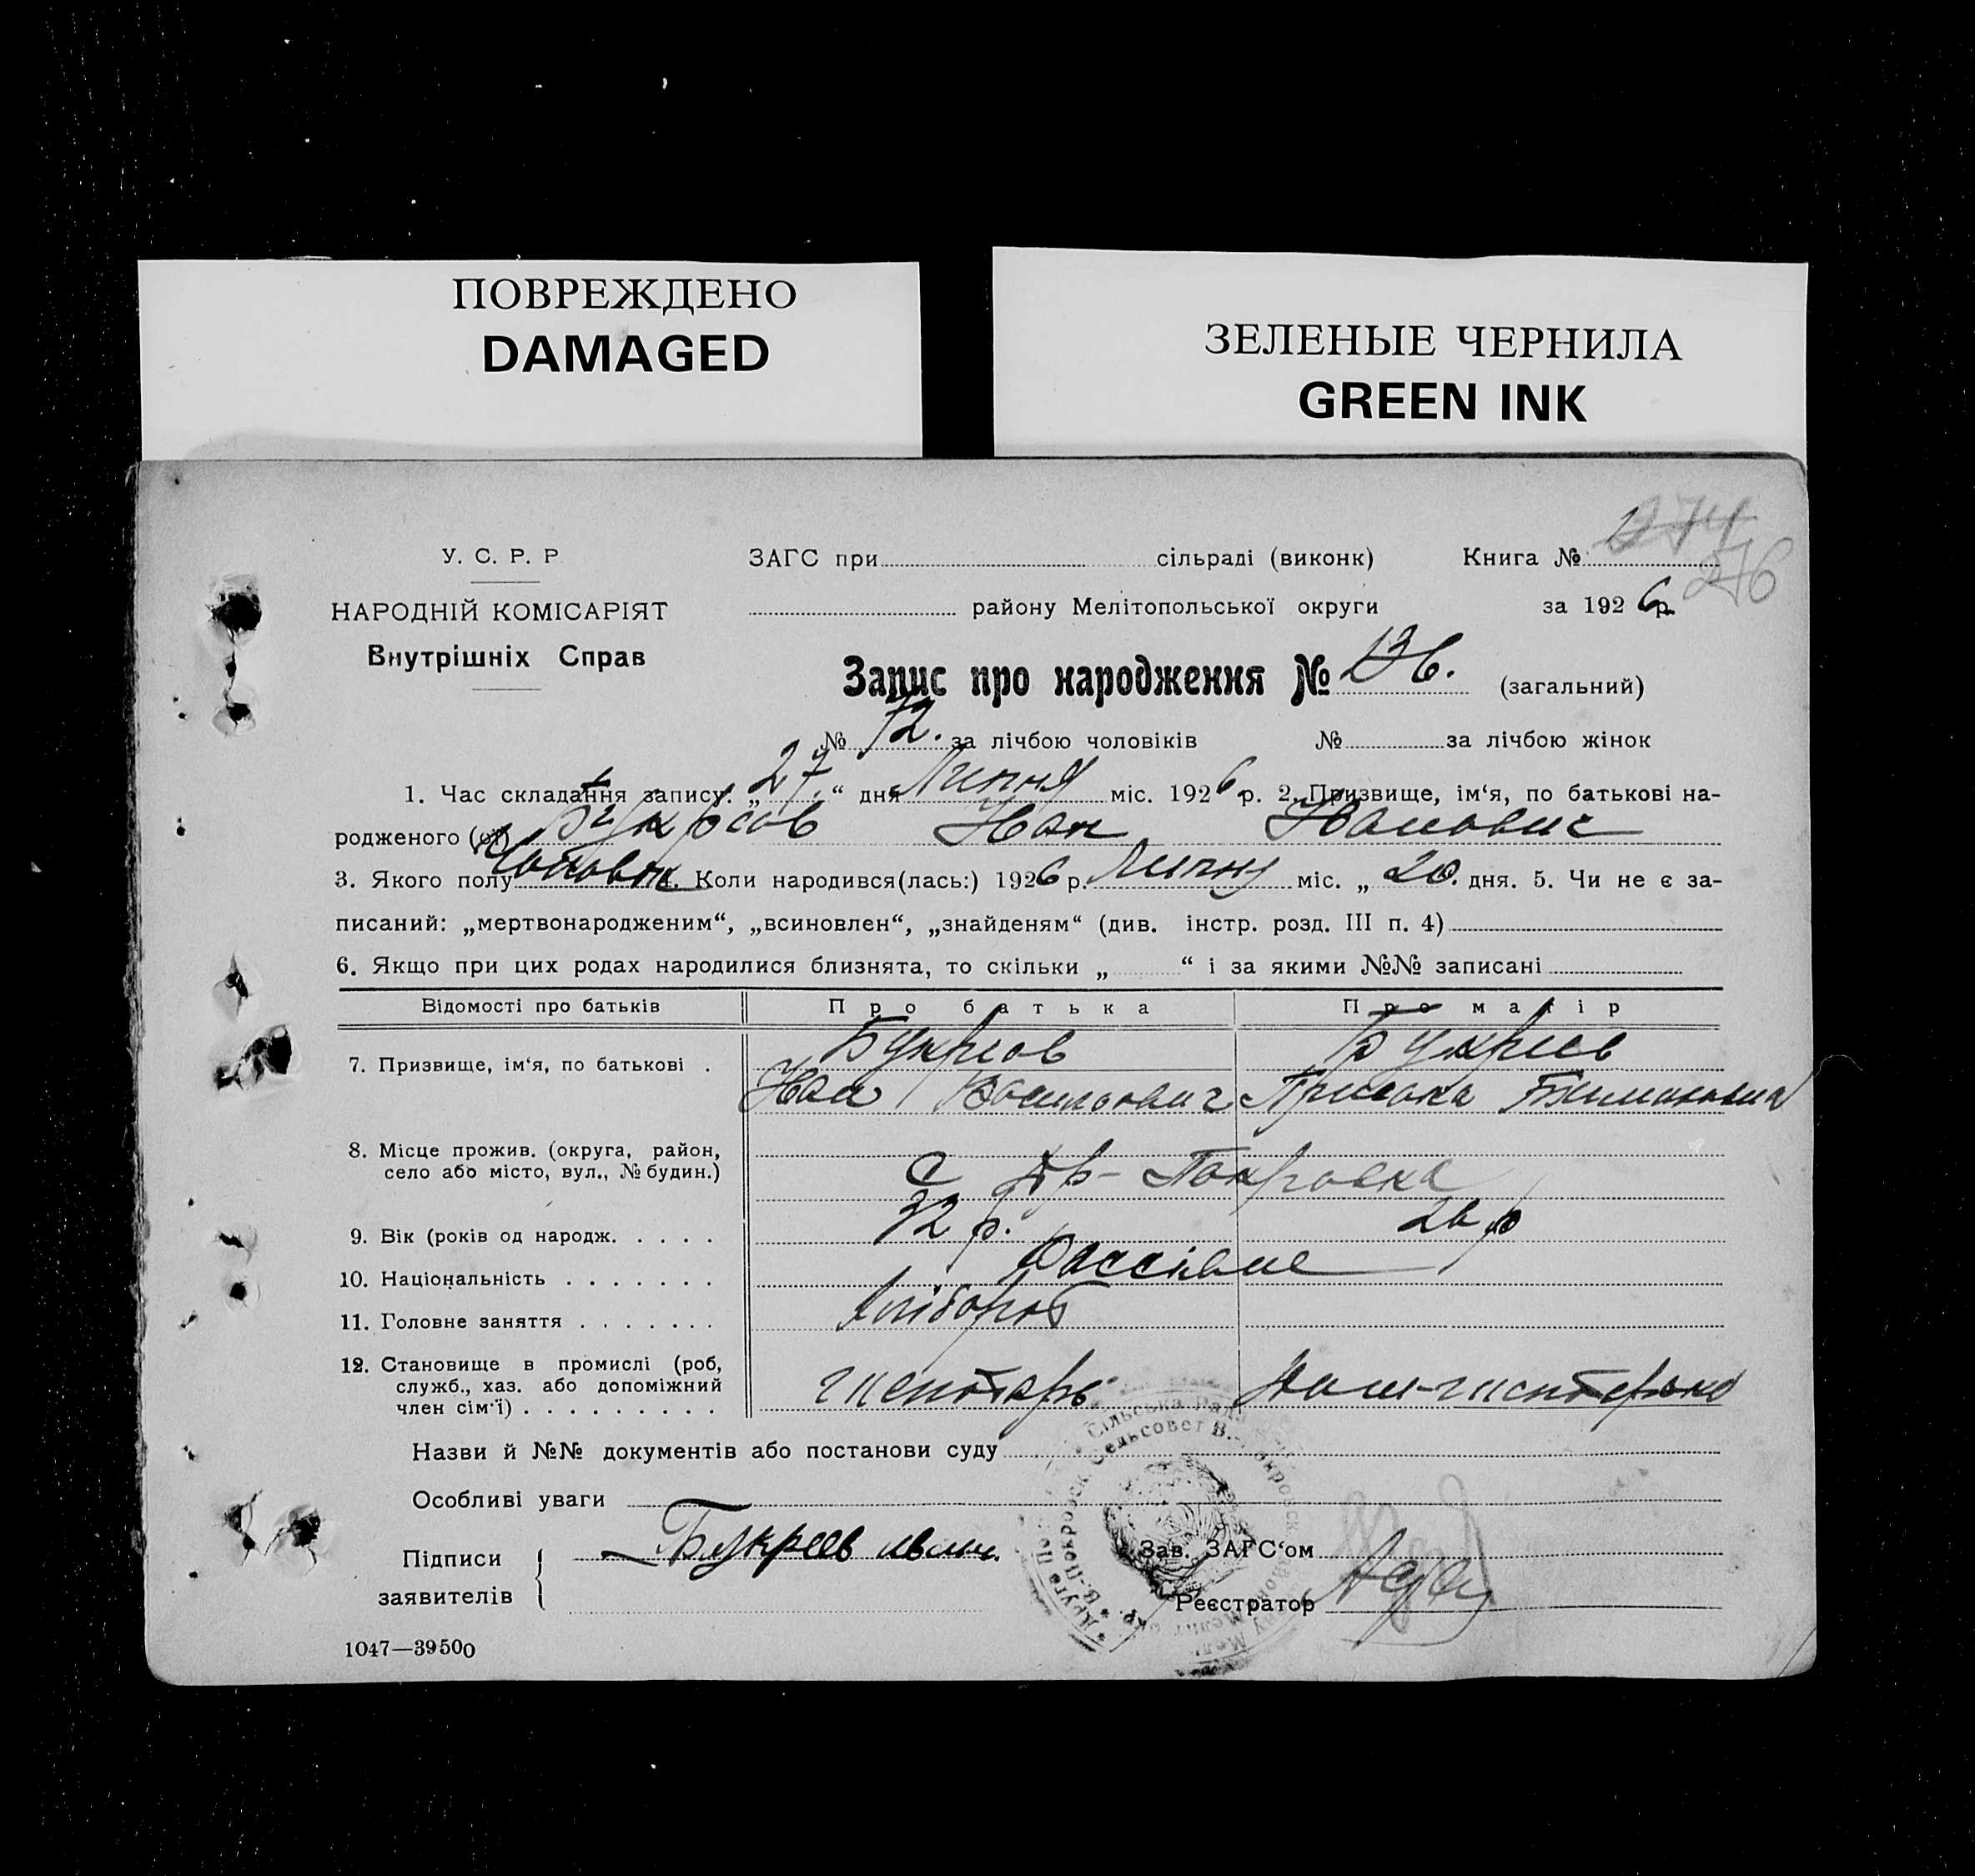 ПОВРЕЖДЕНО
DAMAGED
ЗЕЛЕНЫЕ ЧЕРНИЛА
GREEN INK
274
276
У. С. Р. Р
НАРОДНІЙ КОМІСАРІЯТ
Внутрішніх Справ
ЗАГС при сільраді (виконк) Книга №
району Мелітопольської округи за 1926 р.
Запис про народження № 136. (загальний)
№ 72. за лічбою чоловіків № за лічбою жінок
1. Час складання запису: „27.“ дня Липня міс. 1926 р. 2. Призвище, ім‘я, по батькові на-
родженого (ої) Букреєв Іван Іванович
3. Якого полу Чоловік 4. Коли народився(лась:) 1926 р. Липня міс. „20. дня. 5. Чи не є за-
писаний: „мертвонародженим“, „всиновлен“, „знайденям“ (див. інстр. розд. III п. 4)
6. Якщо при цих родах народилися близнята, то скільки „ “ і за якими №№ записані
Відомості про батьків Про батька Про матір
7. Призвище, ім‘я, по батькові . Букреєв Букреєв
Іван Васильович
8. Місце прожив. (округа, район,
село або місто, вул., № будин.)
с Покровка
9. Вік (років од народж. . . . . 32 р. 26 р
10. Національність . . . . . . .
11. Головне заняття . . . . . . . Хлібороб
12. Становище в промислі (роб,
служб., хаз. або допоміжний
член сім‘ї) . . . . . . . . .
Назви й №№ документів або постанови суду
Особливі уваги
Підписи
заявителів
Букреев Иван
Зав. ЗАГС‘ом
Реєстратор
Сільська Рада
Сельсовет
1047—39500